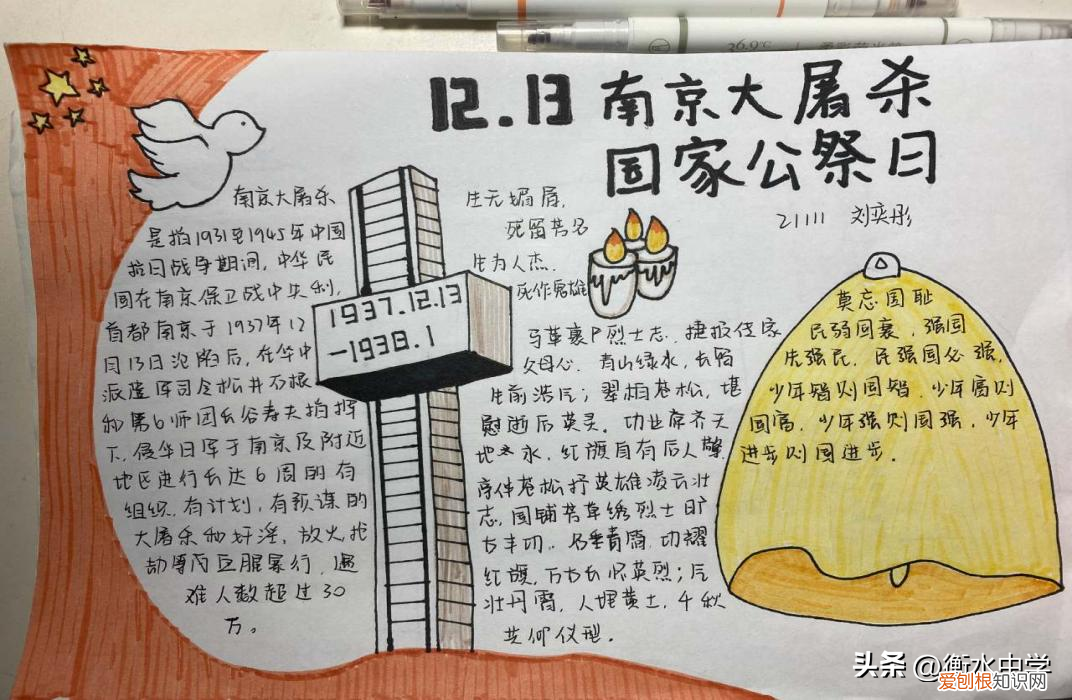 36.9℃
12.13 南京大屠杀
国家公祭日
21111 刘奕彤
南京大屠杀
是指1931至1945年中国
抗日战争期间,中华民
国在南京保卫战中失利,
首都南京于1937年12
月13日沦陷后,在华中
派遣军司令松井石根
和第6师团长谷寿夫指挥
下,侵华日军于南京及附近
地区进行长达6周的有
组织、有计划,有预谋的
大屠杀和奸淫、放火抢
劫等
暴行,遇
难人数超过30
万。
1937.12.13
-1938.1
生无媚屑,
死留芳名
生为人杰,
死作鬼雄
马革裹尸烈士志,捷报住家
父母心,青山绿水,长留
生前浩气;翠柏苍松,堪
慰逝后英灵。功业席齐天
地永,红旗自有后人擎
席伴苍松抒英雄凌云壮
志,国铺芳草绣烈士
丰功。名垂青霄,功耀
红旗,万古长怀英烈;气
壮丹霄,人埋黄土,千秋
共仰仪型.
莫忘国耻
民弱国衰、强国
先强民,民强国必强,
少年智则国智,少年富则
国富,少年强则国强,少年
进步则国进步.
头条 @衡水中学
爱刨根知识网